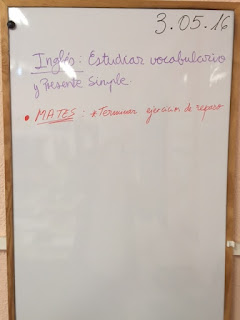 3.05.16
Inglés: Estudiar vocabulario
y Presente Simple.
• MATES: *Terminar ejercicios de repaso